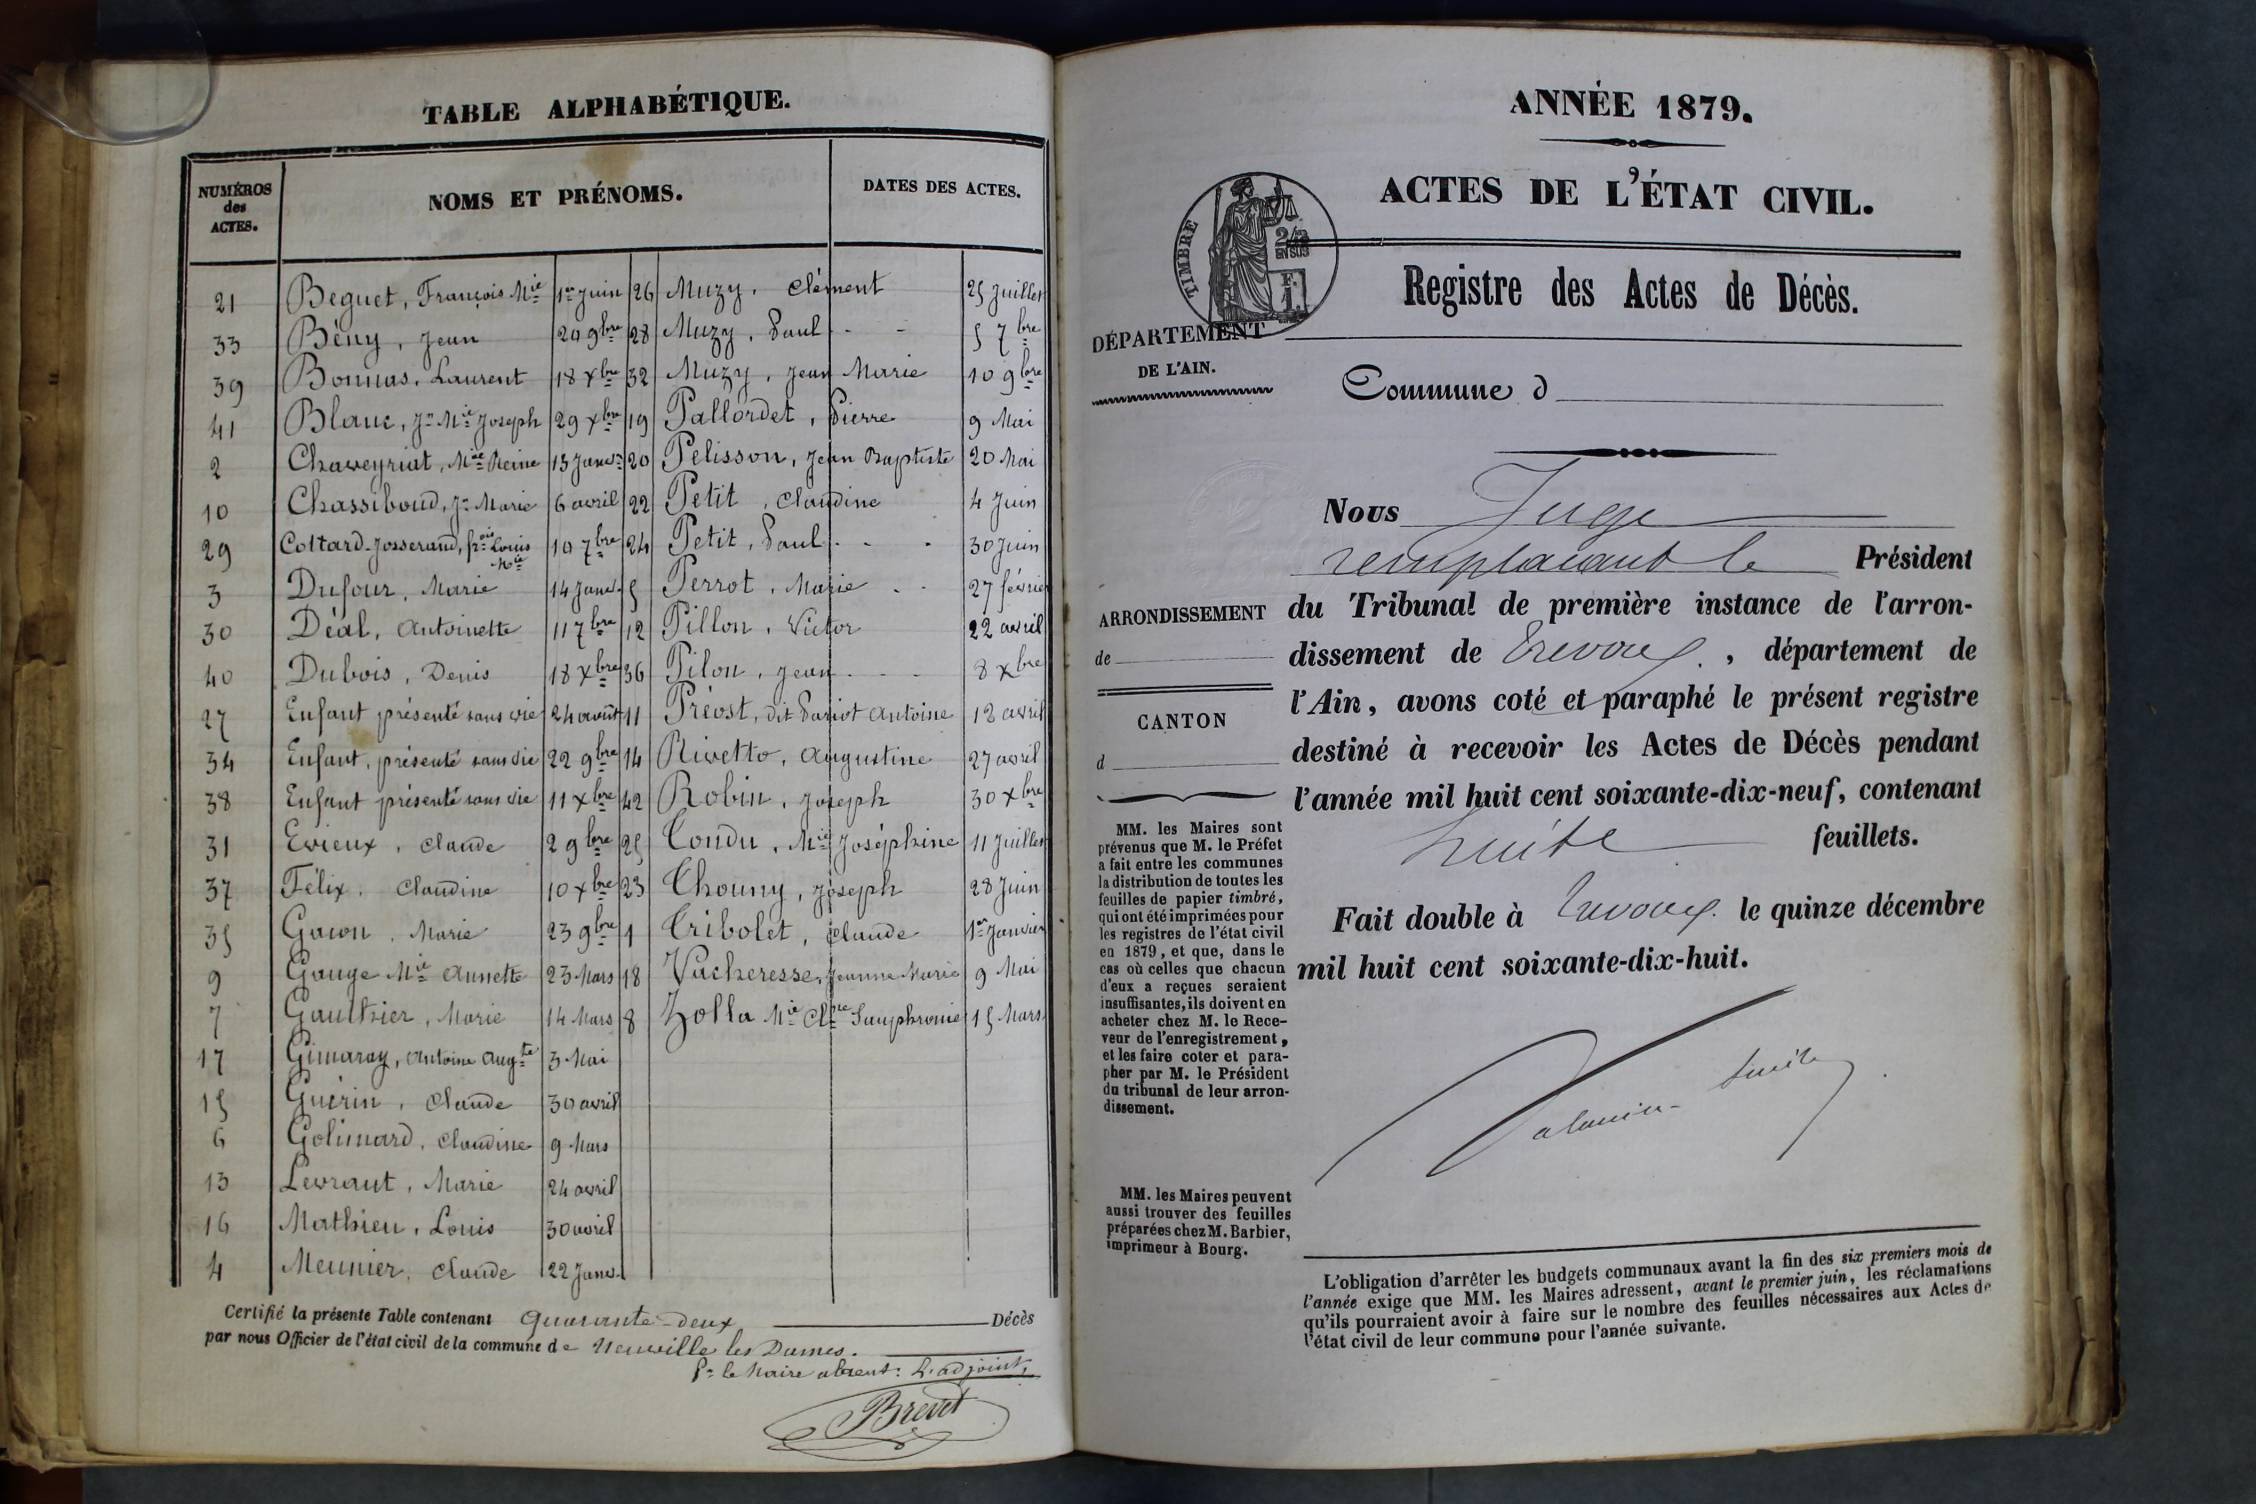 TABLE ALPHABÉTIQUE.
NUMÉROS des ACTES. NOMS ET PRÉNOMS. DATES DES ACTES.
21 Beguet, François Mie 1er Juin 26 Muzy, Clément 25 Juillet
33 Bény, Jean 20 9bre 28 Muzy, Paul - - 5 7bre
39 Bonnas, Laurent 18 Xbre 32 Muzy, Jean Marie 10 9bre
41 Blanc, Jn Mie Joseph 29 Xbre 19 Pallordet, Pierre 9 Mai
2 Chaveyriat, Mie Reine 13 Janvr 20 Pelisson, Jean Baptiste 20 Mai
10 Chassiboud, Jn Marie 6 avril 22 Petit, Claudine 4 Juin
29 Cottard-Josserand, frois Louis Mie 10 7bre 24 Petit, Paul - - 30 Juin
3 Dufour, Marie 14 Janv. 5 Perrot, Marie - - 27 février
30 Déal, Antoinette 11 7bre 12 Pillon, Victor 22 avril
40 Dubois, Denis 18 Xbre 36 Pilon, Jean - - - 8 Xbre
27 Enfant présenté sans vie 24 août 11 Préost, dit Pariot Antoine 12 avril
34 Enfant, présenté sans vie 22 9bre 14 Rivetto, Augustine 27 avril
38 Enfant présenté sans vie 11 Xbre 42 Robin, Joseph 30 Xbre
31 Evieux, Claude 2 9bre 25 Tondu, Mie Joséphine 11 Juillet
37 Félix, Claudine 10 Xbre 23 Thouny, Joseph 28 Juin
35 Gacon, Marie 23 9bre 1 Tribolet, Claude 1er Janvier
9 Gauge Mie Annette 23 Mars 18 Vacheresse, Jeanne Marie 9 Mai
7 Gaulthier, Marie 14 Mars 8 Zolla Mie Clne Samphronie 15 Mars
17 Gimaray, Antoine Augte 3 Mai
15 Guérin, Claude 30 avril
6 Golimard, Claudine 9 Mars
13 Levraut, Marie 24 avril
16 Mathieu, Louis 30 avril
4 Meunier, Claude 22 Janv.
Certifié la présente Table contenant quarante-deux Décès
par nous Officier de l'état civil de la commune de Neuville les Dames.
Pr le Maire absent: L'adjoint,
Brevet
ANNÉE 1879.
ACTES DE L'ÉTAT CIVIL.
TIMBRE
2/10 EN SUS
F. 1.
Registre des Actes de Décès.
DÉPARTEMENT
DE L'AIN.
Commune d
Nous Juge
remplacant le Président
ARRONDISSEMENT
de
CANTON
d
du Tribunal de première instance de l'arron-
dissement de Trevoux, département de
l'Ain, avons coté et paraphé le présent registre
destiné à recevoir les Actes de Décès pendant
l'année mil huit cent soixante-dix-neuf, contenant
huit feuillets.
Fait double à Trevoux. le quinze décembre
mil huit cent soixante-dix-huit.
MM. les Maires sont
prévenus que M. le Préfet
a fait entre les communes
la distribution de toutes les
feuilles de papier timbré,
qui ont été imprimées pour
les registres de l'état civil
en 1879, et que, dans le
cas où celles que chacun
d'eux a reçues seraient
insuffisantes, ils doivent en
acheter chez M. le Rece-
veur de l'enregistrement,
et les faire coter et para-
pher par M. le Président
du tribunal de leur arron-
dissement.
MM. les Maires peuvent
aussi trouver des feuilles
préparées chez M. Barbier,
imprimeur à Bourg.
L'obligation d'arrêter les budgets communaux avant la fin des six premiers mois de
l'année exige que MM. les Maires adressent, avant le premier juin, les réclamations
qu'ils pourraient avoir à faire sur le nombre des feuilles nécessaires aux Actes de
l'état civil de leur commune pour l'année suivante.